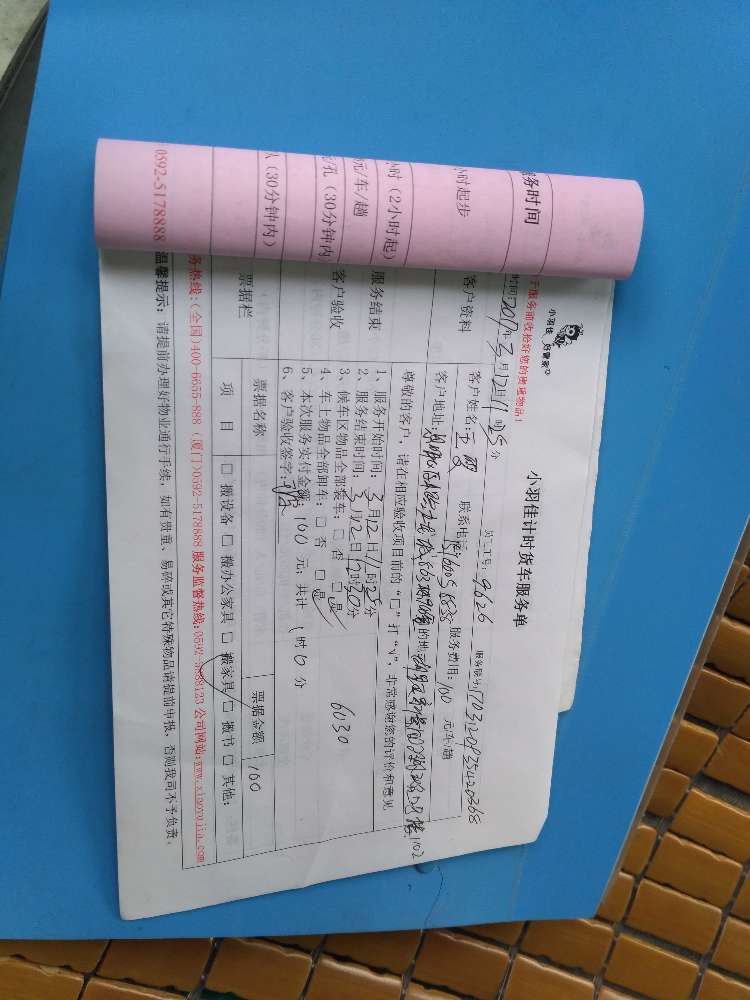 小羽佳 好管家
小羽佳计时货车服务单
于服务前收拾好您的贵重物品!
员工工号: 9626
时间 2017年3月12日11时25分
客户资料
客户姓名:王
联系电话:
服务费用:100 元/车/趟
客户地址:
尊敬的客户,请在相应验收项目前的“□”打“√”,非常感谢您的评价和意见
服务结束
客户验收
1、服务开始时间:3月12日11时25分
2、服务结束时间:3月12日12时30分
3、候车区物品全部装车:□ 否 □ 是
4、车上物品全部卸车:□ 否 □ 是
5、本次服务实付金额:100 元;共计 1时6分
6、客户验收签字:
6030
票据栏
票据名称
票据金额
100
项 目
□ 搬设备 □ 搬办公家具 □ 搬家具 □ 搬书 □ 其他:
务热线:(全国)400-6655-888 (厦门)0592-5178888 服务监督热线:0592-5888123 公司网站:www.xiaoyujia.com
温馨提示:请提前办理好物业通行手续,如有贵重、易碎或其它特殊物品请提前申报,否则我司不予负责。
服务时间
小时起步
小时(2小时起)
元/车/趟
孔(30分钟内
人(30分钟内)
0592-5178888